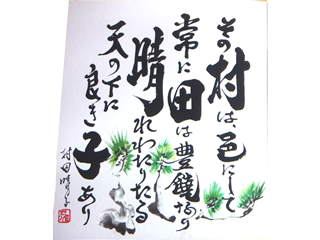 その村は、邑にして
常に田は豊饒であり
晴れわたりたる
天の下に
良き子あり
村田晴子